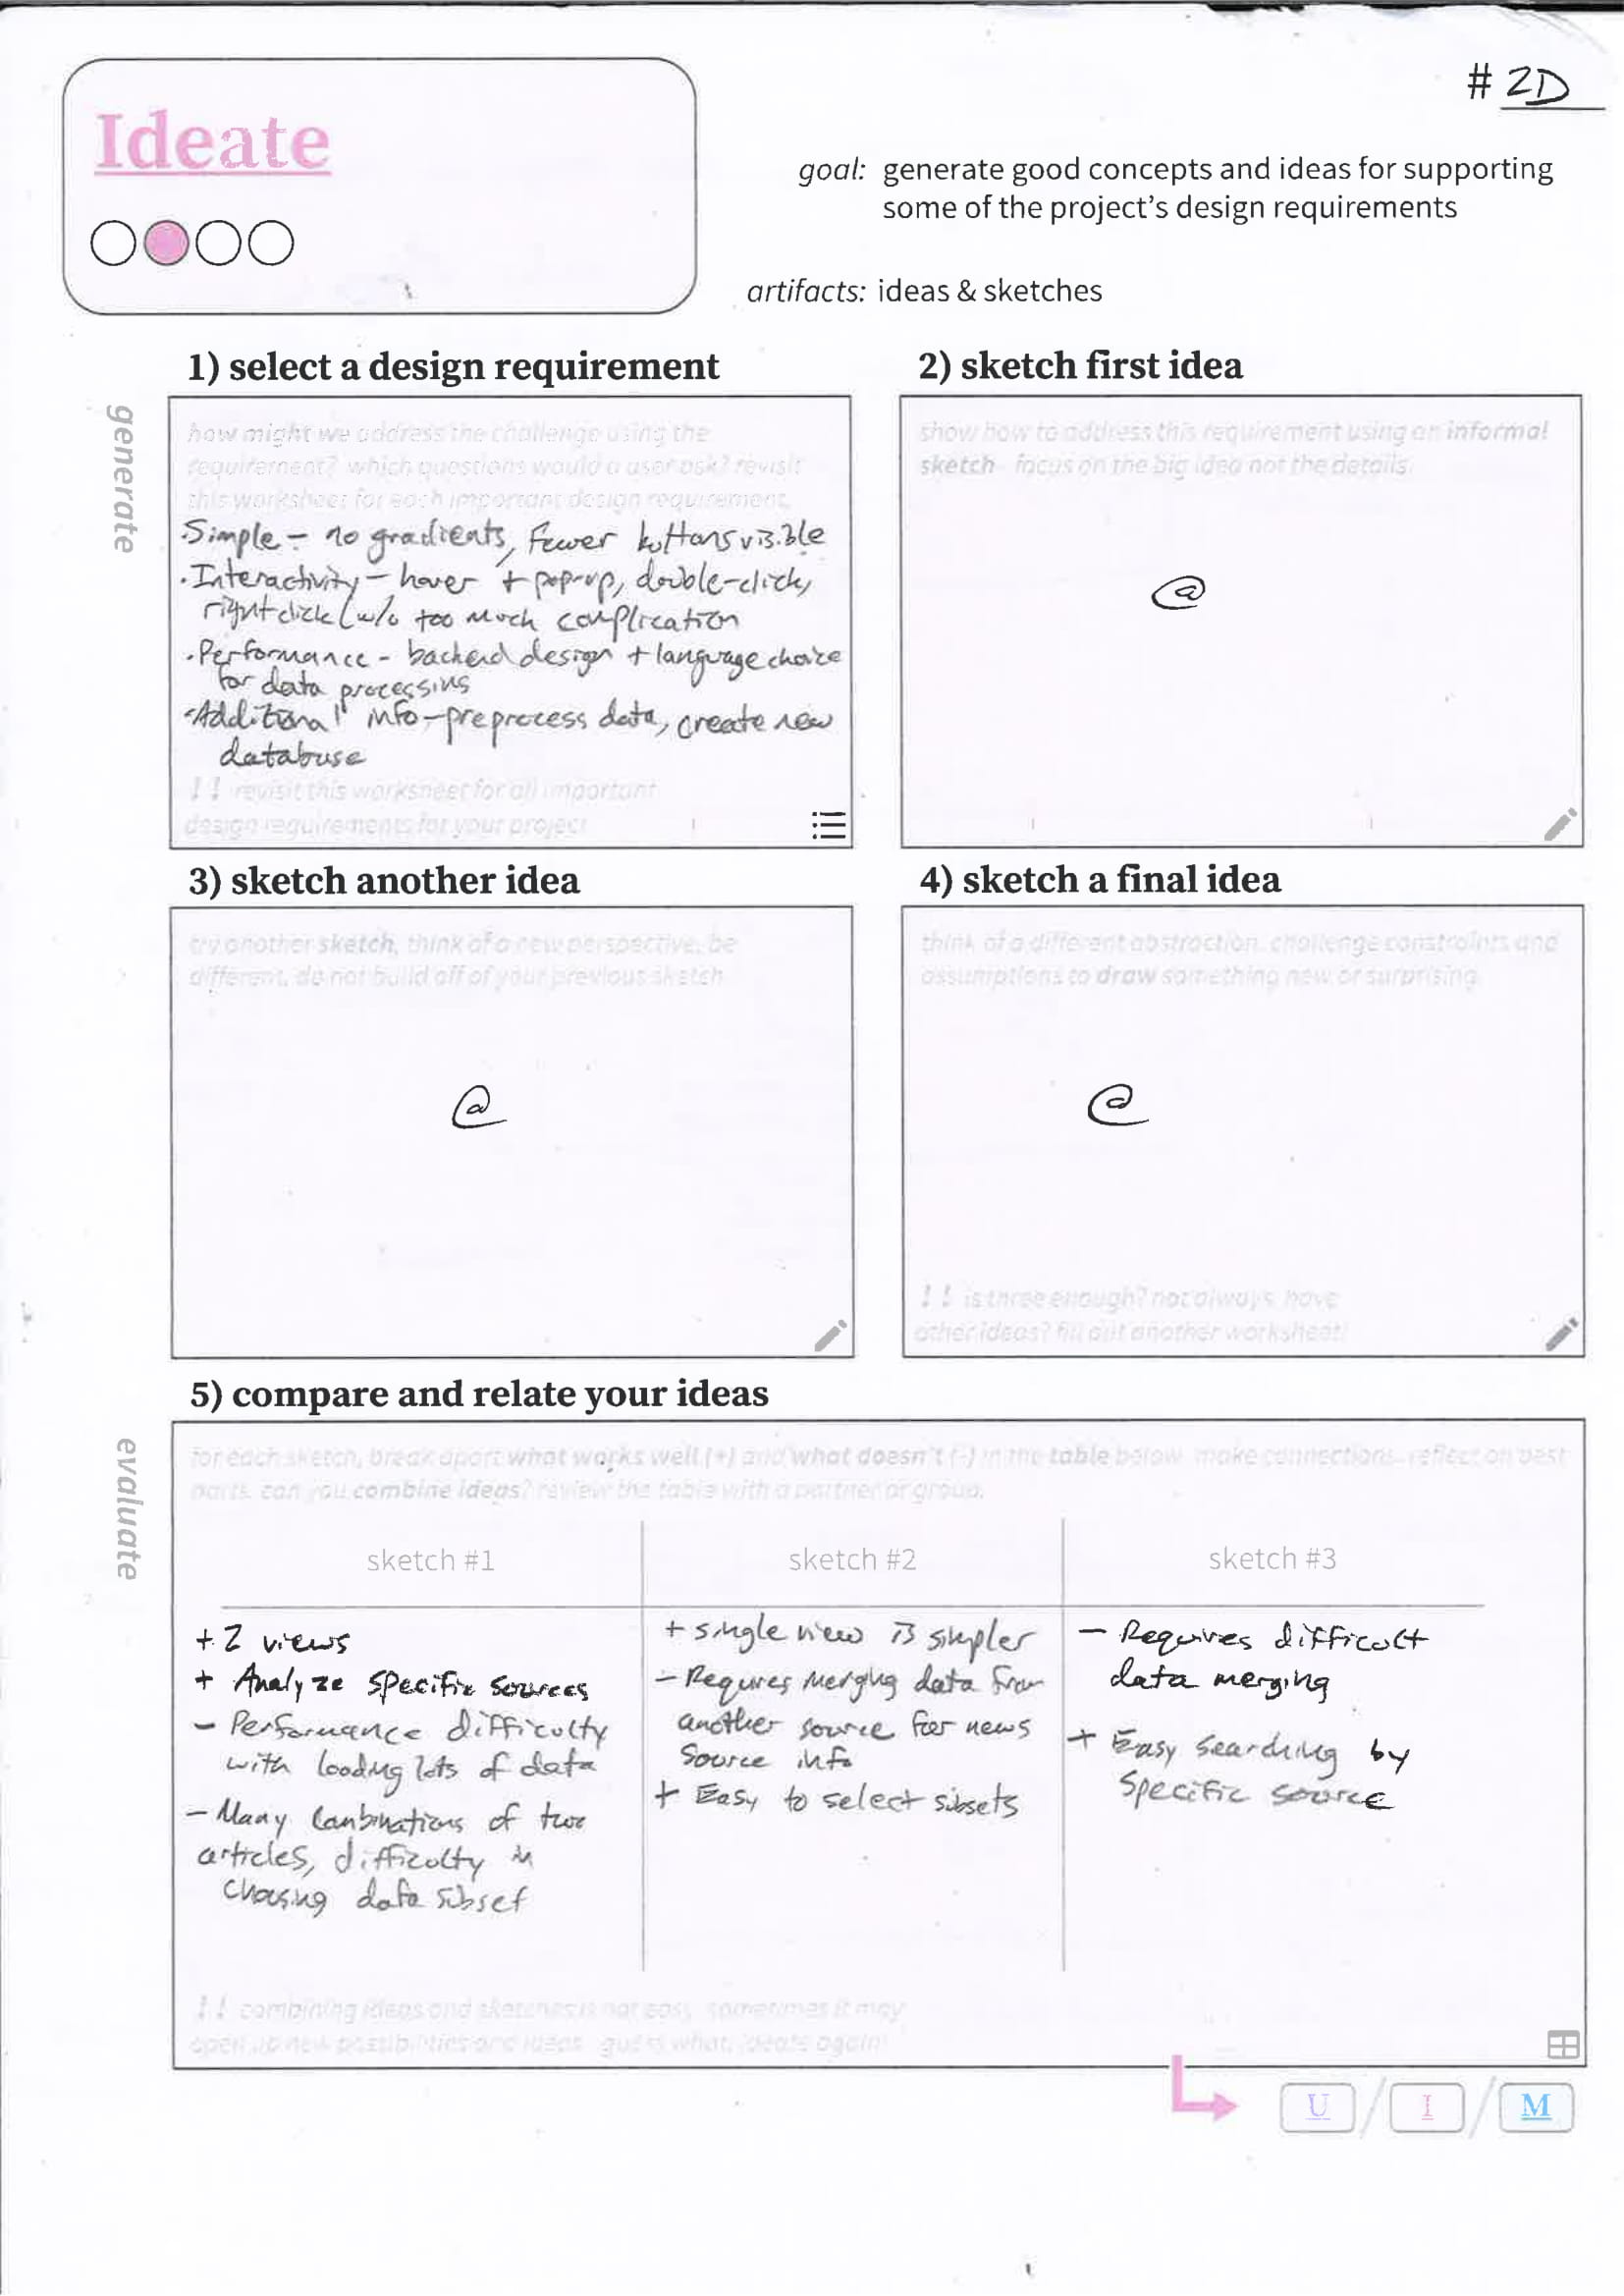 # 2D
Ideate
goal: generate good concepts and ideas for supporting
some of the project's design requirements
artifacts: ideas & sketches
generate
1) select a design requirement
how might we address the challenge using the
requirement? which questions would a user ask? revisit
this worksheet for each important design requirement.
·Simple - no gradients, fewer buttons visible
·Interactivity - hover + pop-up, double-click,
right click (w/o too much complication
·Performance - backend design + language choice
for data processing
·Additional info - preprocess data, create new
database
!! revisit this worksheet for all important
design requirements for your project
2) sketch first idea
show how to address this requirement using an informal
sketch - focus on the big idea not the details.
@
3) sketch another idea
try another sketch, think of a new perspective, be
different, do not build off of your previous sketch
@
4) sketch a final idea
think of a different abstraction, challenge constraints and
assumptions to draw something new or surprising
@
!! is three enough? not always, have
other ideas? fill out another worksheet!
evaluate
5) compare and relate your ideas
for each sketch, break apart what works well (+) and what doesn't (-) in the table below. make connections. reflect on best
parts. can you combine ideas? review the table with a partner or group.
sketch #1
+ 2 views
+ Analyze specific sources
- Performance difficulty
with loading lots of data
- Many combinations of two
articles, difficulty in
choosing data subset
sketch #2
+ single view is simpler
- Requires merging data from
another source for news
source info
+ Easy to select subsets
sketch #3
- Requires difficult
data merging
+ Easy searching by
specific source
!! combining ideas and sketches is not easy, sometimes it may
open up new possibilities and ideas. guess what, ideate again!
U / I / M